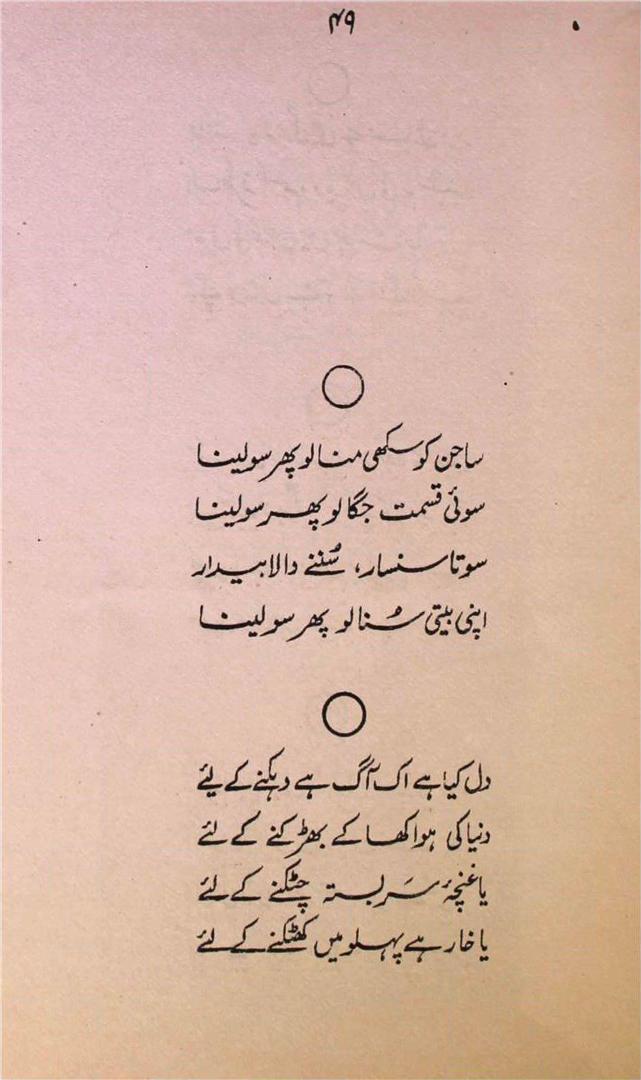 ۴۹
ساجن کو سکھی منا لو پھر سو لینا
سوئی قسمت جگا لو پھر سو لینا
سوتا سنسار، سُننے والا بیدار
اپنی بیتی سُنا لو پھر سو لینا
دل کیا ہے اک آگ ہے دہکنے کے لئے
دنیا کی ہوا کھا کے بھڑکنے کے لئے
یا غنچۂ سَر بستہ چٹکنے کے لئے
یا خار ہے پہلو میں کھٹکنے کے لئے